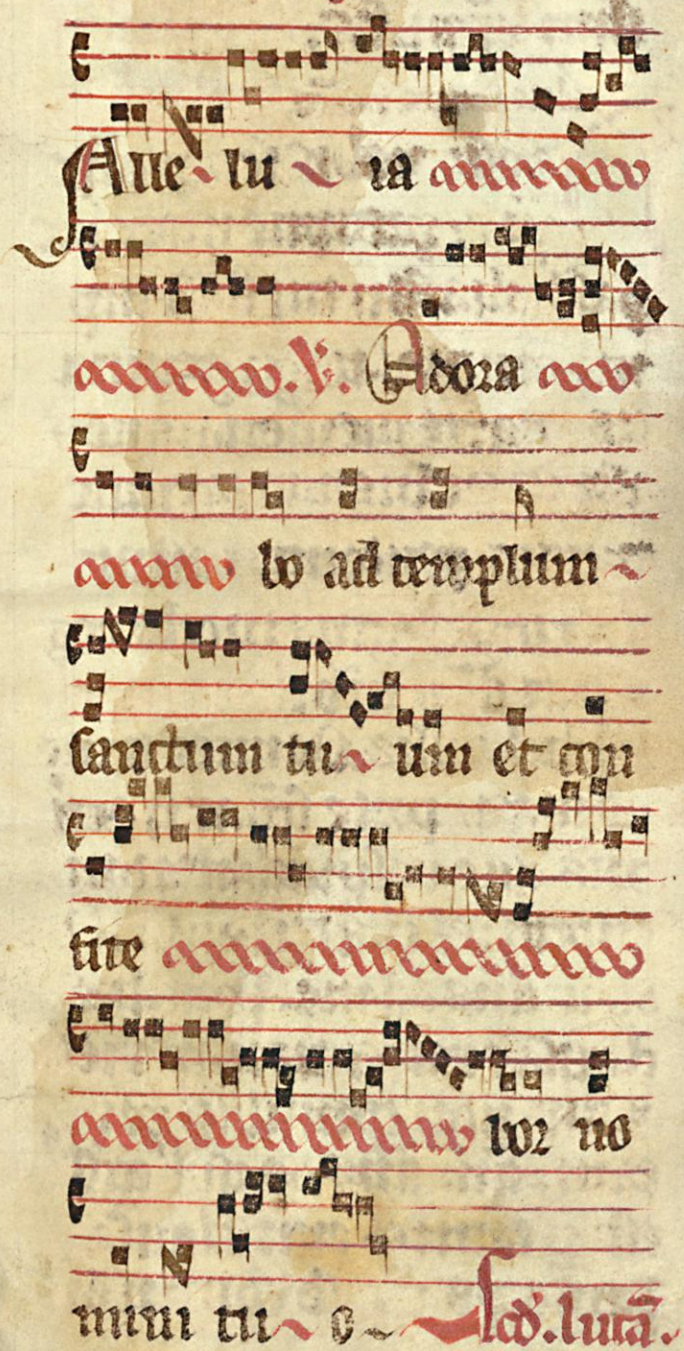 Alle lu ia
℣. Adora
bo ad templum
sanctum tu um et con
fite
bor no
mini tu o Scd. lucā.